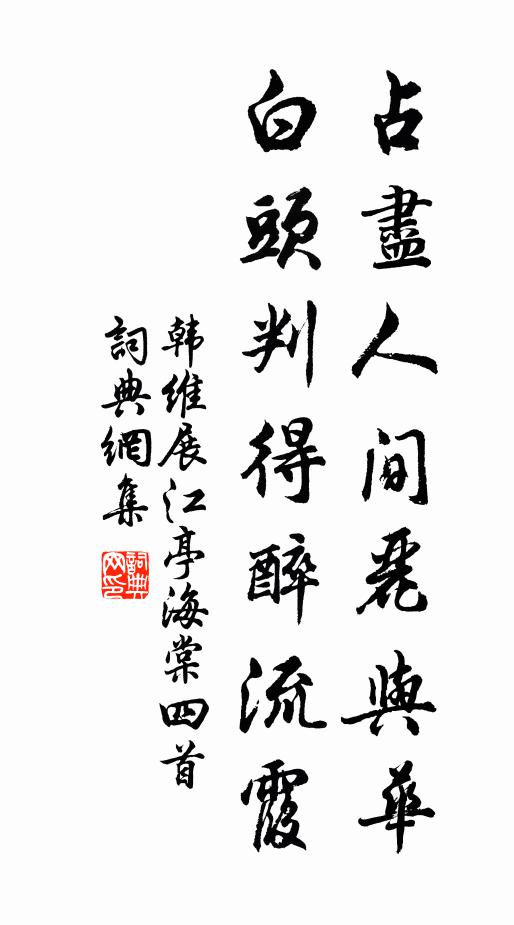 占盡人間麗與華
白頭判得醉流霞
韩維展江亭海棠四首
詞典網集
詞典网印